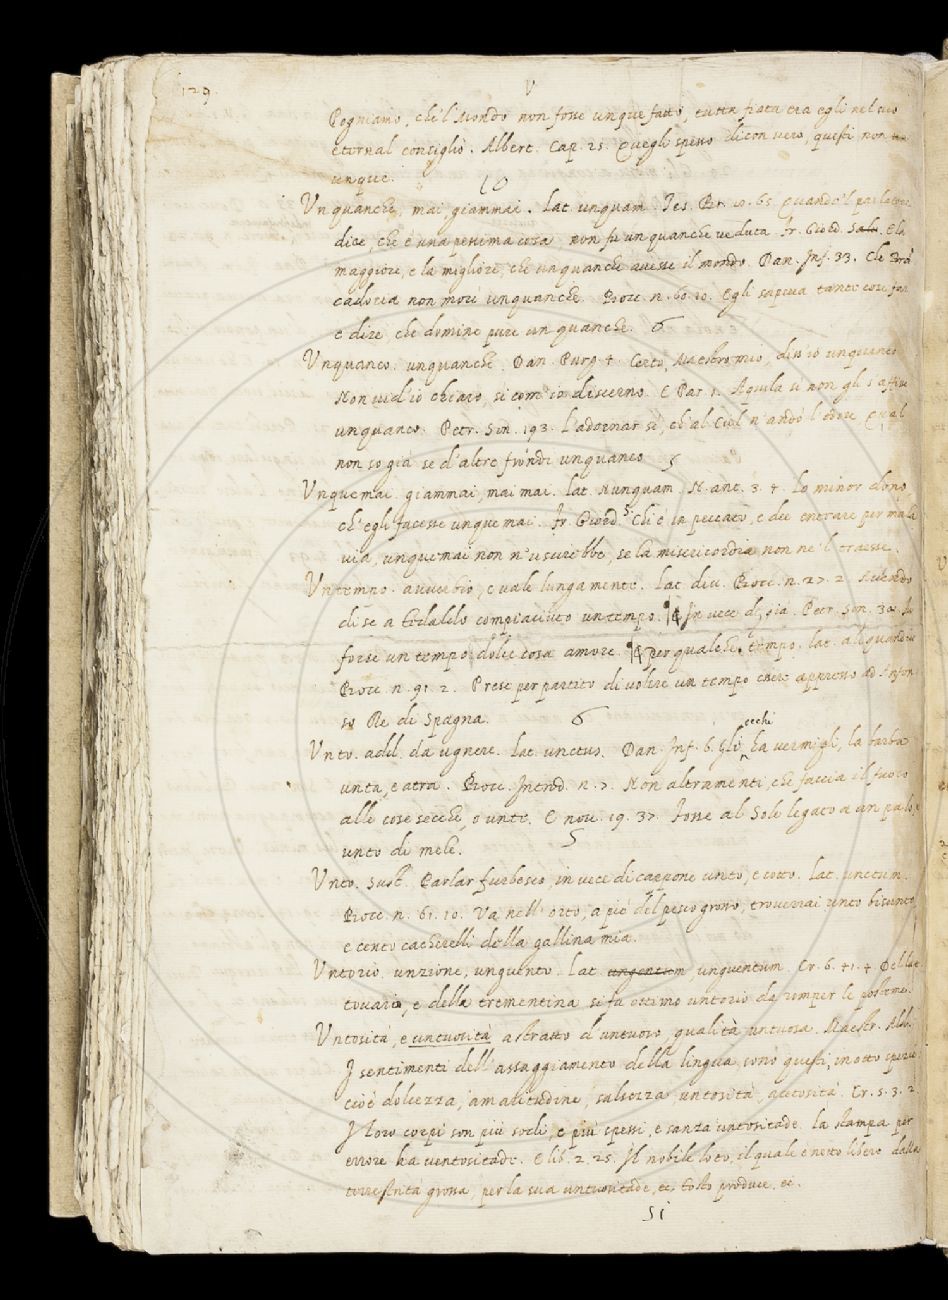 129.
V
Pogniamo, che'l Mondo non fosse unque fatto, tutta fiata era egli nel suo
eternal consiglio. Albert. Cap. 25. Quegli spesso dicon vero, questi non
unque.
10
Unquanche, mai, giammai. Lat. unquam. Tes. Br. 10. 65. Quando'l parlatore
dice, che è una pessima cosa non fu unquanche veduta. Fr. Giord. Salu. E la
maggiore, e la migliore, che unquanche avesse il mondo. Dan. Inf. 33. Che Bran
ca doria non morì unquanche. Bocc. n. 60. 10. Egli sapeva tante cose fare
e dire, che domine pure un quanche. 6
Unquanco. unquanche. Dan. Purg. 4. Certo, Maestro mio, diss'io unquanco
Non vid'io chiaro, sì com'io discerno. E Par. 1. Aquila sì non gli s'affisse
unquanco. Petr. Son. 193. L'adornar sè, ch'al Ciel n'andò l'odore, Qual
non so già se d'altre frondi unquanco. 5
Unquemai. giammai, mai mai. Lat. Nunquam. N. ant. 3. 4. Lo minor dono,
ch'egli facesse unque mai. Fr. Giord. S. Chi è in peccato, e dee entrare per mala
via, unquemai non n'uscirebbe, se la misericordia non ne'l traesse.
Untempo. avverbio, e vale lungamente. Lat. diu. Bocc. n. 27. 2. Avendo
di se a Tedaldo compiaciuto untempo. ¶ In vece di, già. Petr. Son. 30
forse un tempo dolce cosa amore. ¶ per qualche tempo. Lat. aliquandiu
Bocc. n. 91. 2. Prese per partito di volere un tempo essere appresso ad Anfon
so Re di Spagna. 6
occhi
Unto. add. da ugnere. Lat. unctus. Dan. Inf. 6. Gli ha vermigli, la barba
unta, e atra. Bocc. Introd. n. 7. Non altramenti, che faccia il fuoco
alle cose secche, o unte. E nov. 19. 37. Fosse al Sole legato a un palo, e
unto di mele. 5
Unto. Sust. Parlar furbesco, in vece di cappone unto, e cotto. Lat. unctum.
Bocc. n. 61. 10. Va nell'orto, a piè del pesco grosso, troverrai unto bisunto,
e cento cacherelli della gallina mia.
Untorio. unzione, unguento. Lat. ungentum unguentum. Cr. 6. 41. 4. Della
tovaria, e della trementina si fa ottimo untorio da romper le posteme.
Untosità, e untuosità astratto d'untuoso, qualità untuosa. Maestr. Aldb.
I sentimenti dell'assaggiamento della lingua sono questi, in otto spezie
cioè dolcezza, amaritudine, salsezza, untosità, acetosità. Cr. 5. 3. 2
I loro corpi son più sodi, e più spessi, e sanza untositade. la stampa per
errore ha ventositade. E lib. 2. 25. Il nobile loto, il quale è netto libero dalla
terrestrità grossa, per la sua untuositade, ec. tosto produce, ec.
51